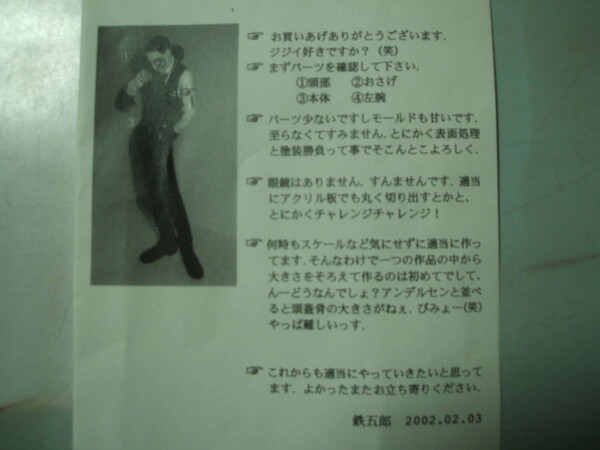 ☞ お買いあげありがとうございます.
ジジイ好きですか?(笑)
☞ まずパーツを確認して下さい.
①頭部 ②おさげ
③本体 ④左腕
☞ パーツ少ないですしモールドも甘いです.
至らなくてすみません.とにかく表面処理
と塗装勝負って事でそこんとこよろしく.
☞ 眼鏡はありません.すんませんです.適当
にアクリル板でも丸く切り出すとかと、
とにかくチャレンジチャレンジ!
☞ 何時もスケールなど気にせずに適当に作っ
てます.そんなわけで一つの作品の中から
大きさをそろえて作るのは初めてでして、
んーどうなんでしょ?アンデルセンと並べ
ると頭蓋骨の大きさがねぇ.びみょー(笑)
やっぱ難しいっす.
☞ これからも適当にやっていきたいと思って
ます.よかったまたお立ち寄りください.
鉄五郎 2002.02.03